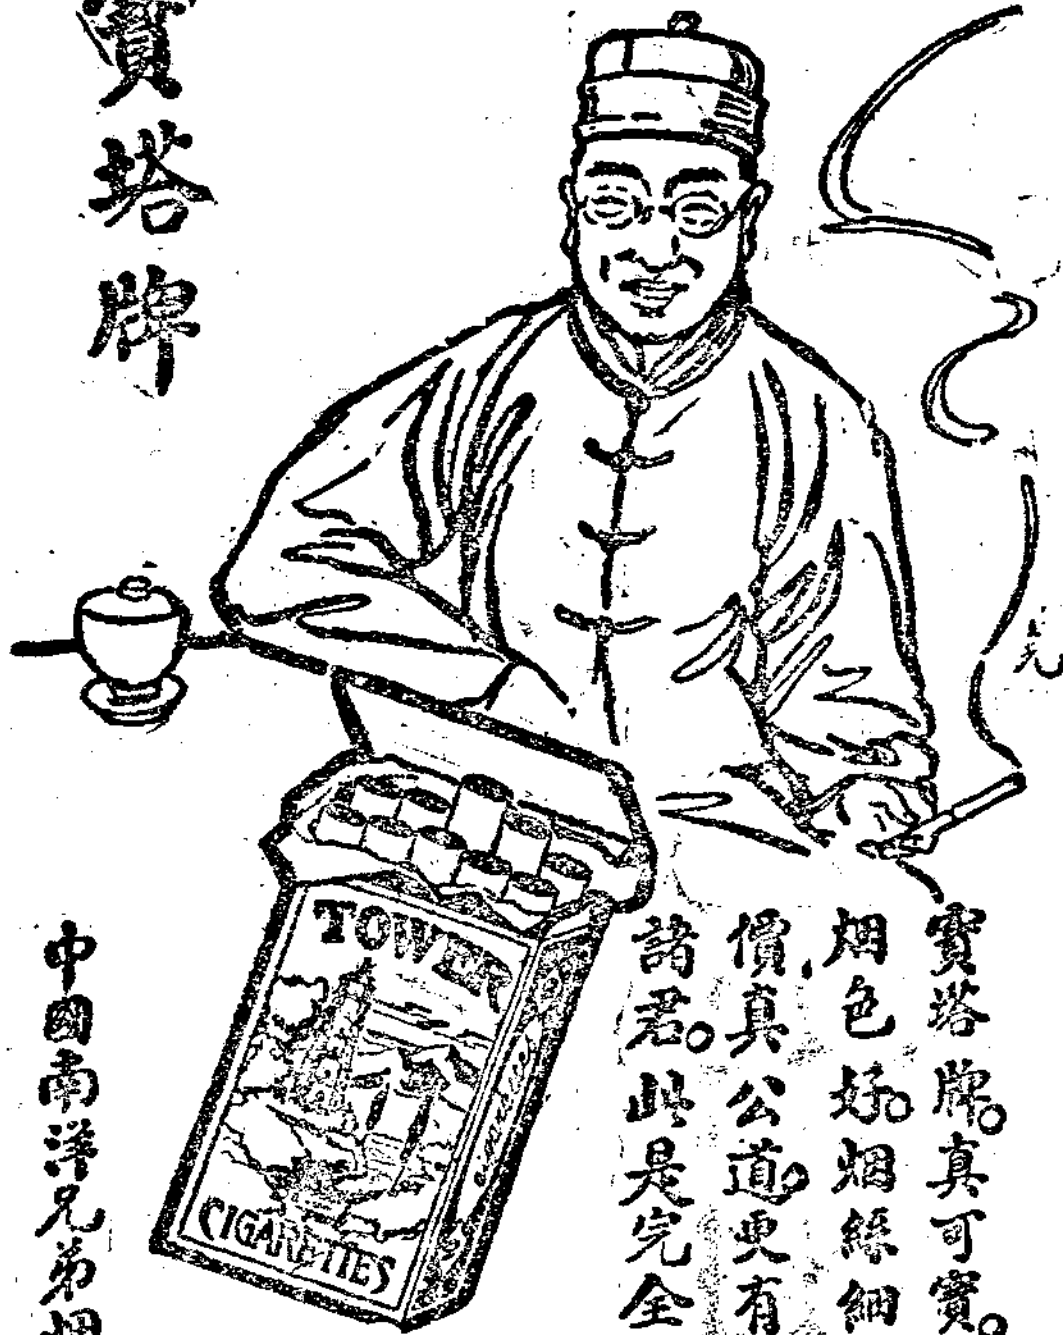 寶塔牌
寶塔牌。真可寶。
烟色好。烟絲細
價真公道。更有
諸君。此是完全
TOWER
CIGARETTES
中國南洋兄弟烟